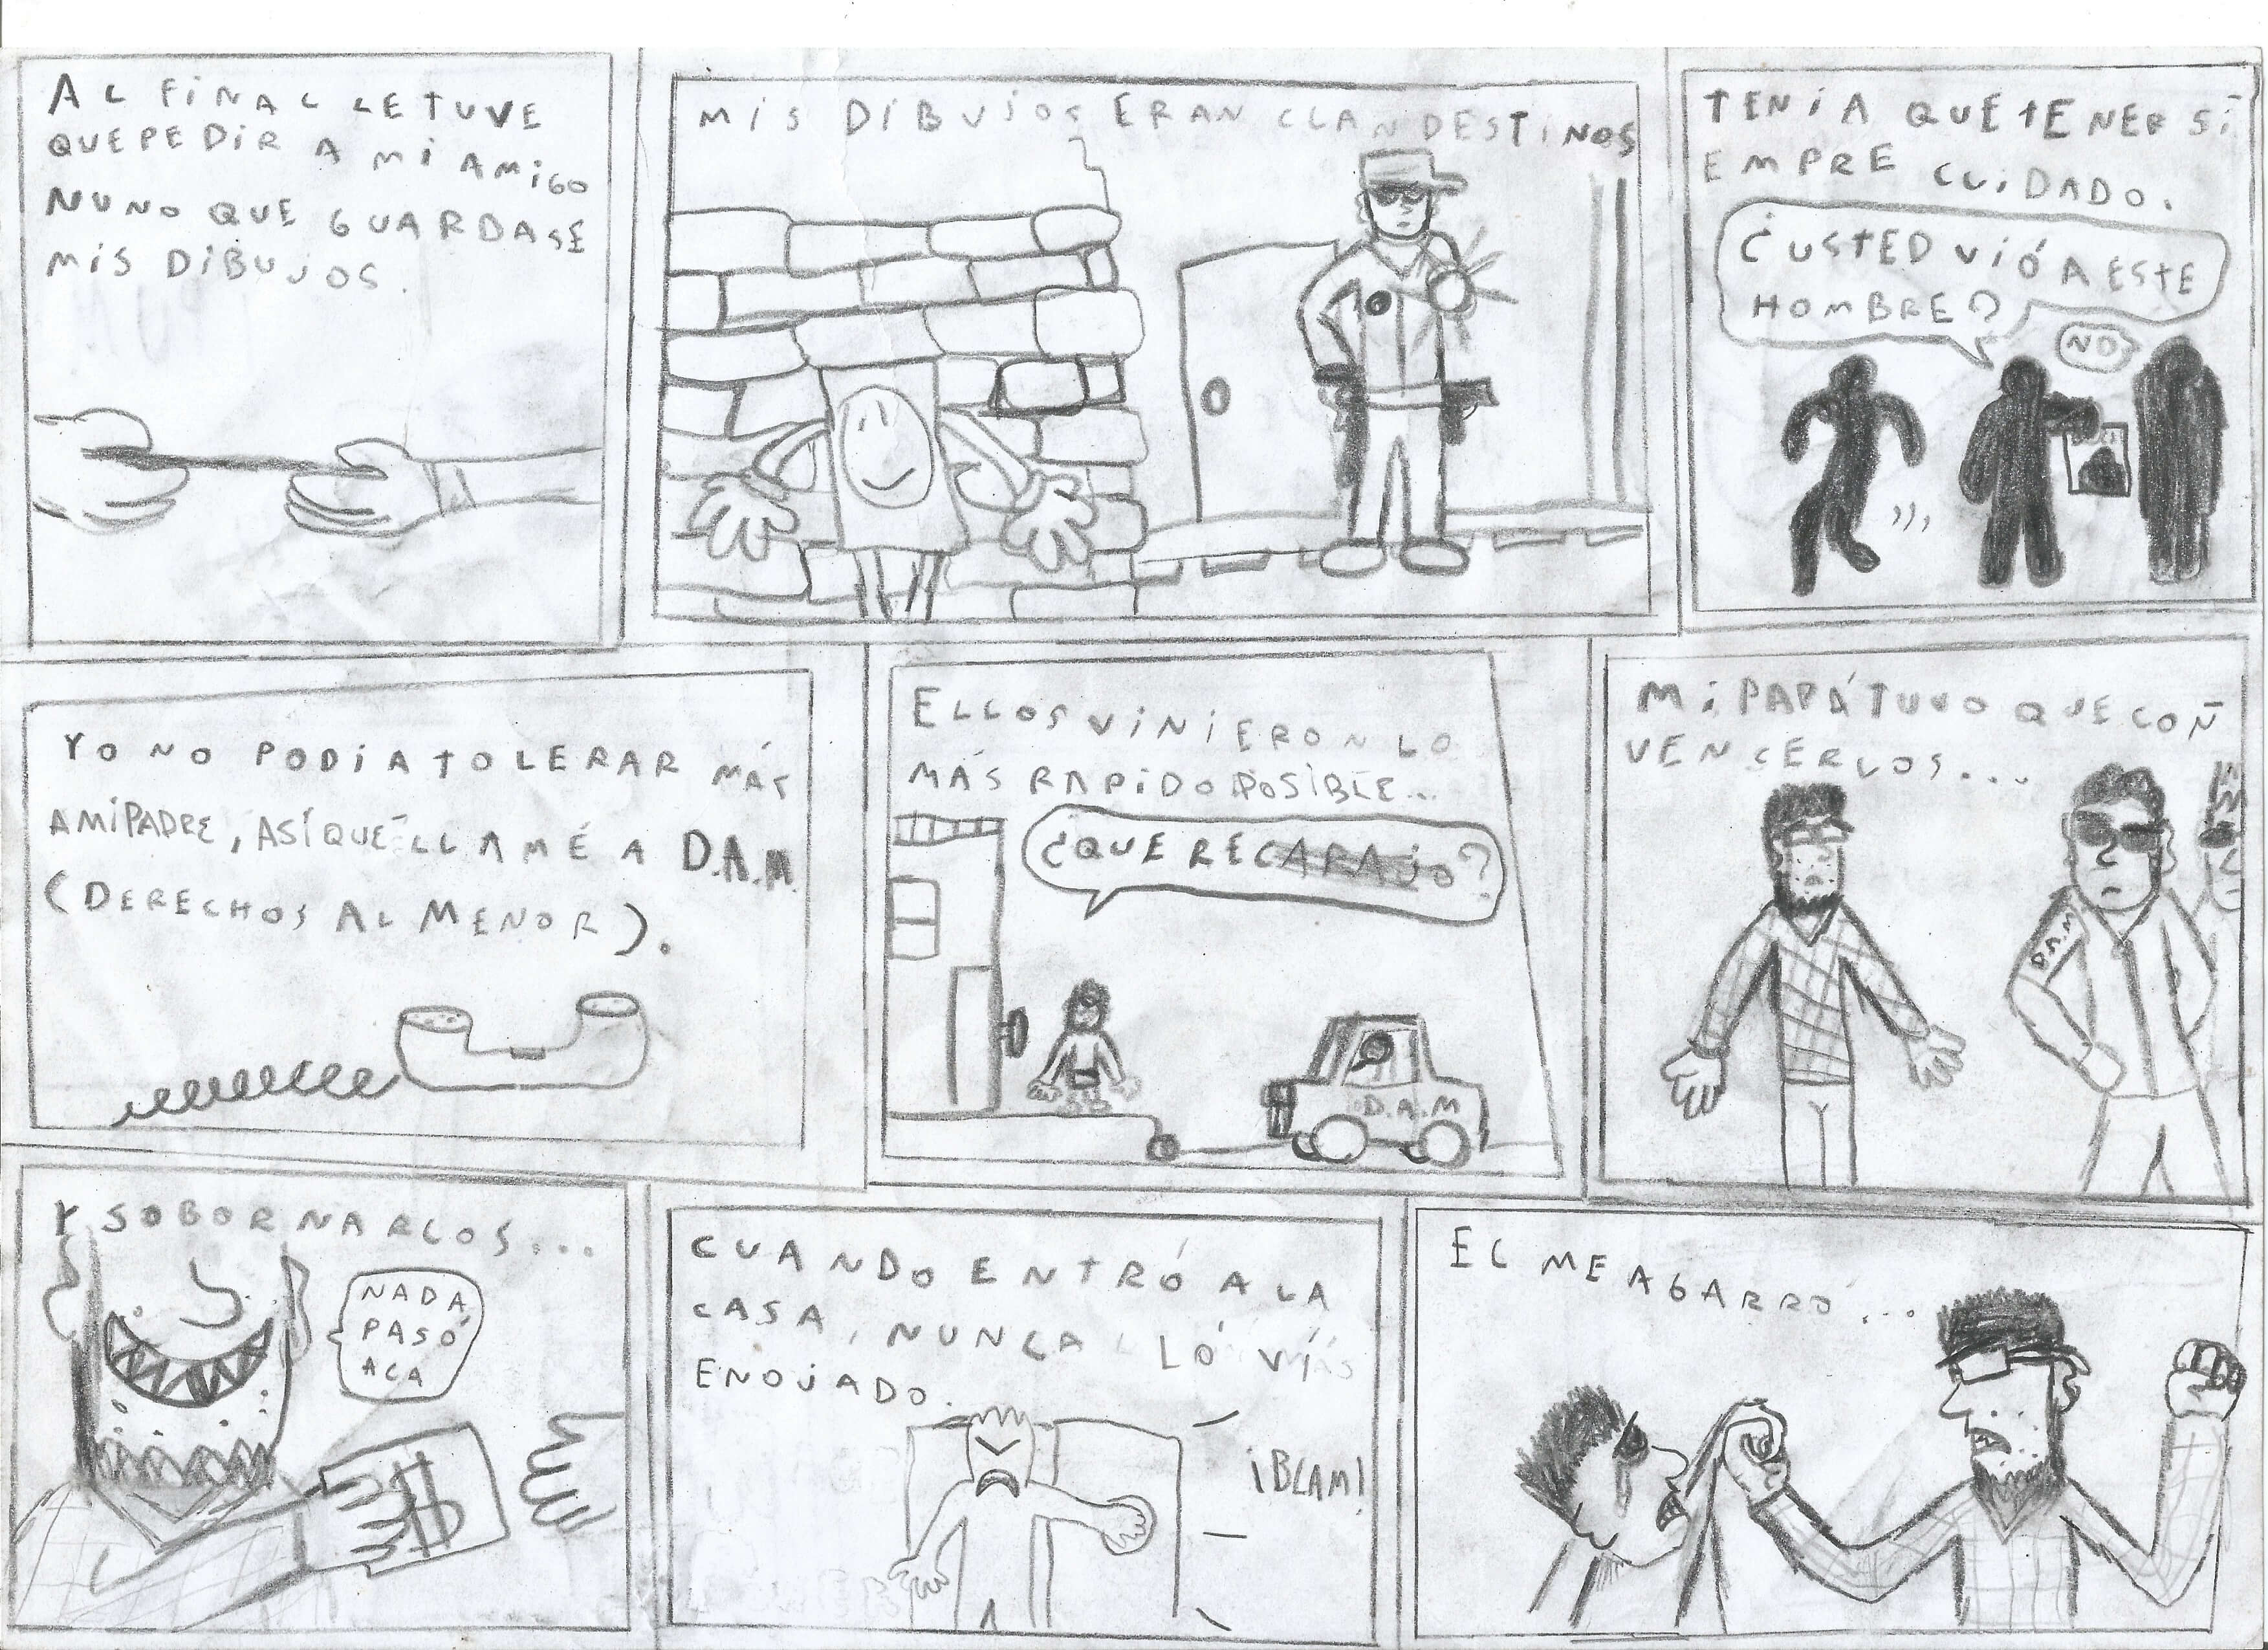 AL FINAL LE TUVE
QUE PEDIR A MI AMIGO
NUNO QUE GUARDASE
MIS DIBUJOS.
MIS DIBUJOS ERAN CLANDESTINOS
TENIA QUE TENER SI
EMPRE CUIDADO.
¿USTED VIÓ A ESTE
HOMBRE?
NO
YO NO PODIA TOLERAR MÁS
A MI PADRE, ASÍ QUE LLAMÉ A D.A.M
(DERECHOS AL MENOR).
ELLOS VINIERON LO
MÁS RAPIDO POSIBLE...
¿QUE RECARAJO?
D.A.M
MI PAPÁ TUVO QUE CON
VENCERLOS...
D.A.M
Y SOBORNARLOS...
NADA
PASÓ
ACA
$
CUANDO ENTRÓ A LA
CASA, NUNCA LO VÍ MÁS
ENOJADO.
¡BLAM!
EL ME AGARRÓ...